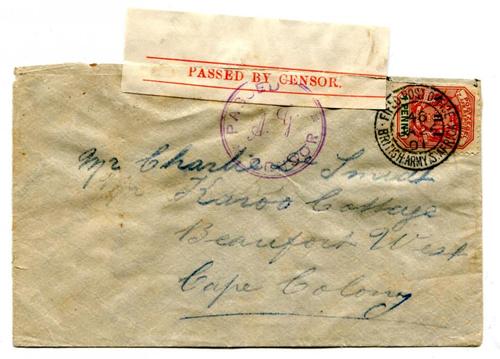 PASSED BY CENSOR.
PASSED CENSOR
FIELD POST OFFICE BRITISH ARMY S. AFRICA
46
01
Mr Charlie De Smidt
Karoo Cottage
Beaufort West
Cape Colony